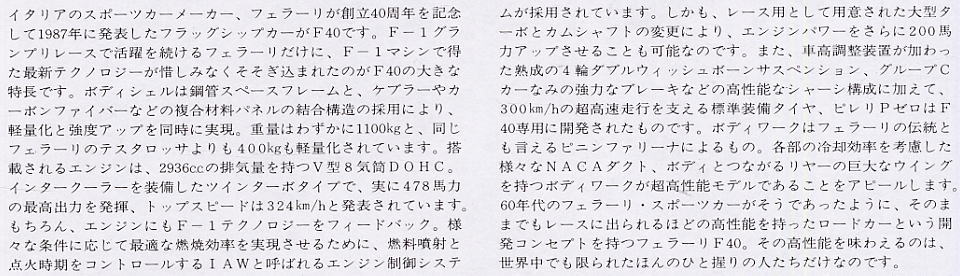 イタリアのスポーツカーメーカー、フェラーリが創立40周年を記念
して1987年に発表したフラッグシップカーがF40です。F－1グラ
ンプリレースで活躍を続けるフェラーリだけに、F－1マシンで得
た最新テクノロジーが惜しみなくそそぎ込まれたのがF40の大きな
特長です。ボディシェルは鋼管スペースフレームと、ケブラーやカ
ーボンファイバーなどの複合材料パネルの結合構造の採用により、
軽量化と強度アップを同時に実現。重量はわずかに1100kgと、同じ
フェラーリのテスタロッサよりも400kgも軽量化されています。搭
載されるエンジンは、2936ccの排気量を持つV型8気筒DOHC。
インタークーラーを装備したツインターボタイプで、実に478馬力
の最高出力を発揮、トップスピードは324km/hと発表されています。
もちろん、エンジンにもF－1テクノロジーをフィードバック。様
々な条件に応じて最適な燃焼効率を実現させるために、燃料噴射と
点火時期をコントロールするIAWと呼ばれるエンジン制御システ
ムが採用されています。しかも、レース用として用意された大型タ
ーボとカムシャフトの変更により、エンジンパワーをさらに200馬
力アップさせることも可能なのです。また、車高調整装置が加わっ
た熟成の4輪ダブルウィッシュボーンサスペンション、グループC
カーなみの強力なブレーキなどの高性能なシャーシ構成に加えて、
300km/hの超高速走行を支える標準装備タイヤ、ピレリPゼロはF
40専用に開発されたものです。ボディワークはフェラーリの伝統と
も言えるピニンファリーナによるもの。各部の冷却効率を考慮した
様々なNACAダクト、ボディとつながるリヤーの巨大なウイング
を持つボディワークが超高性能モデルであることをアピールします。
60年代のフェラーリ・スポーツカーがそうであったように、そのま
までもレースに出られるほどの高性能を持ったロードカーという開
発コンセプトを持つフェラーリF40。その高性能を味わえるのは、
世界中でも限られたほんのひと握りの人たちだけなのです。